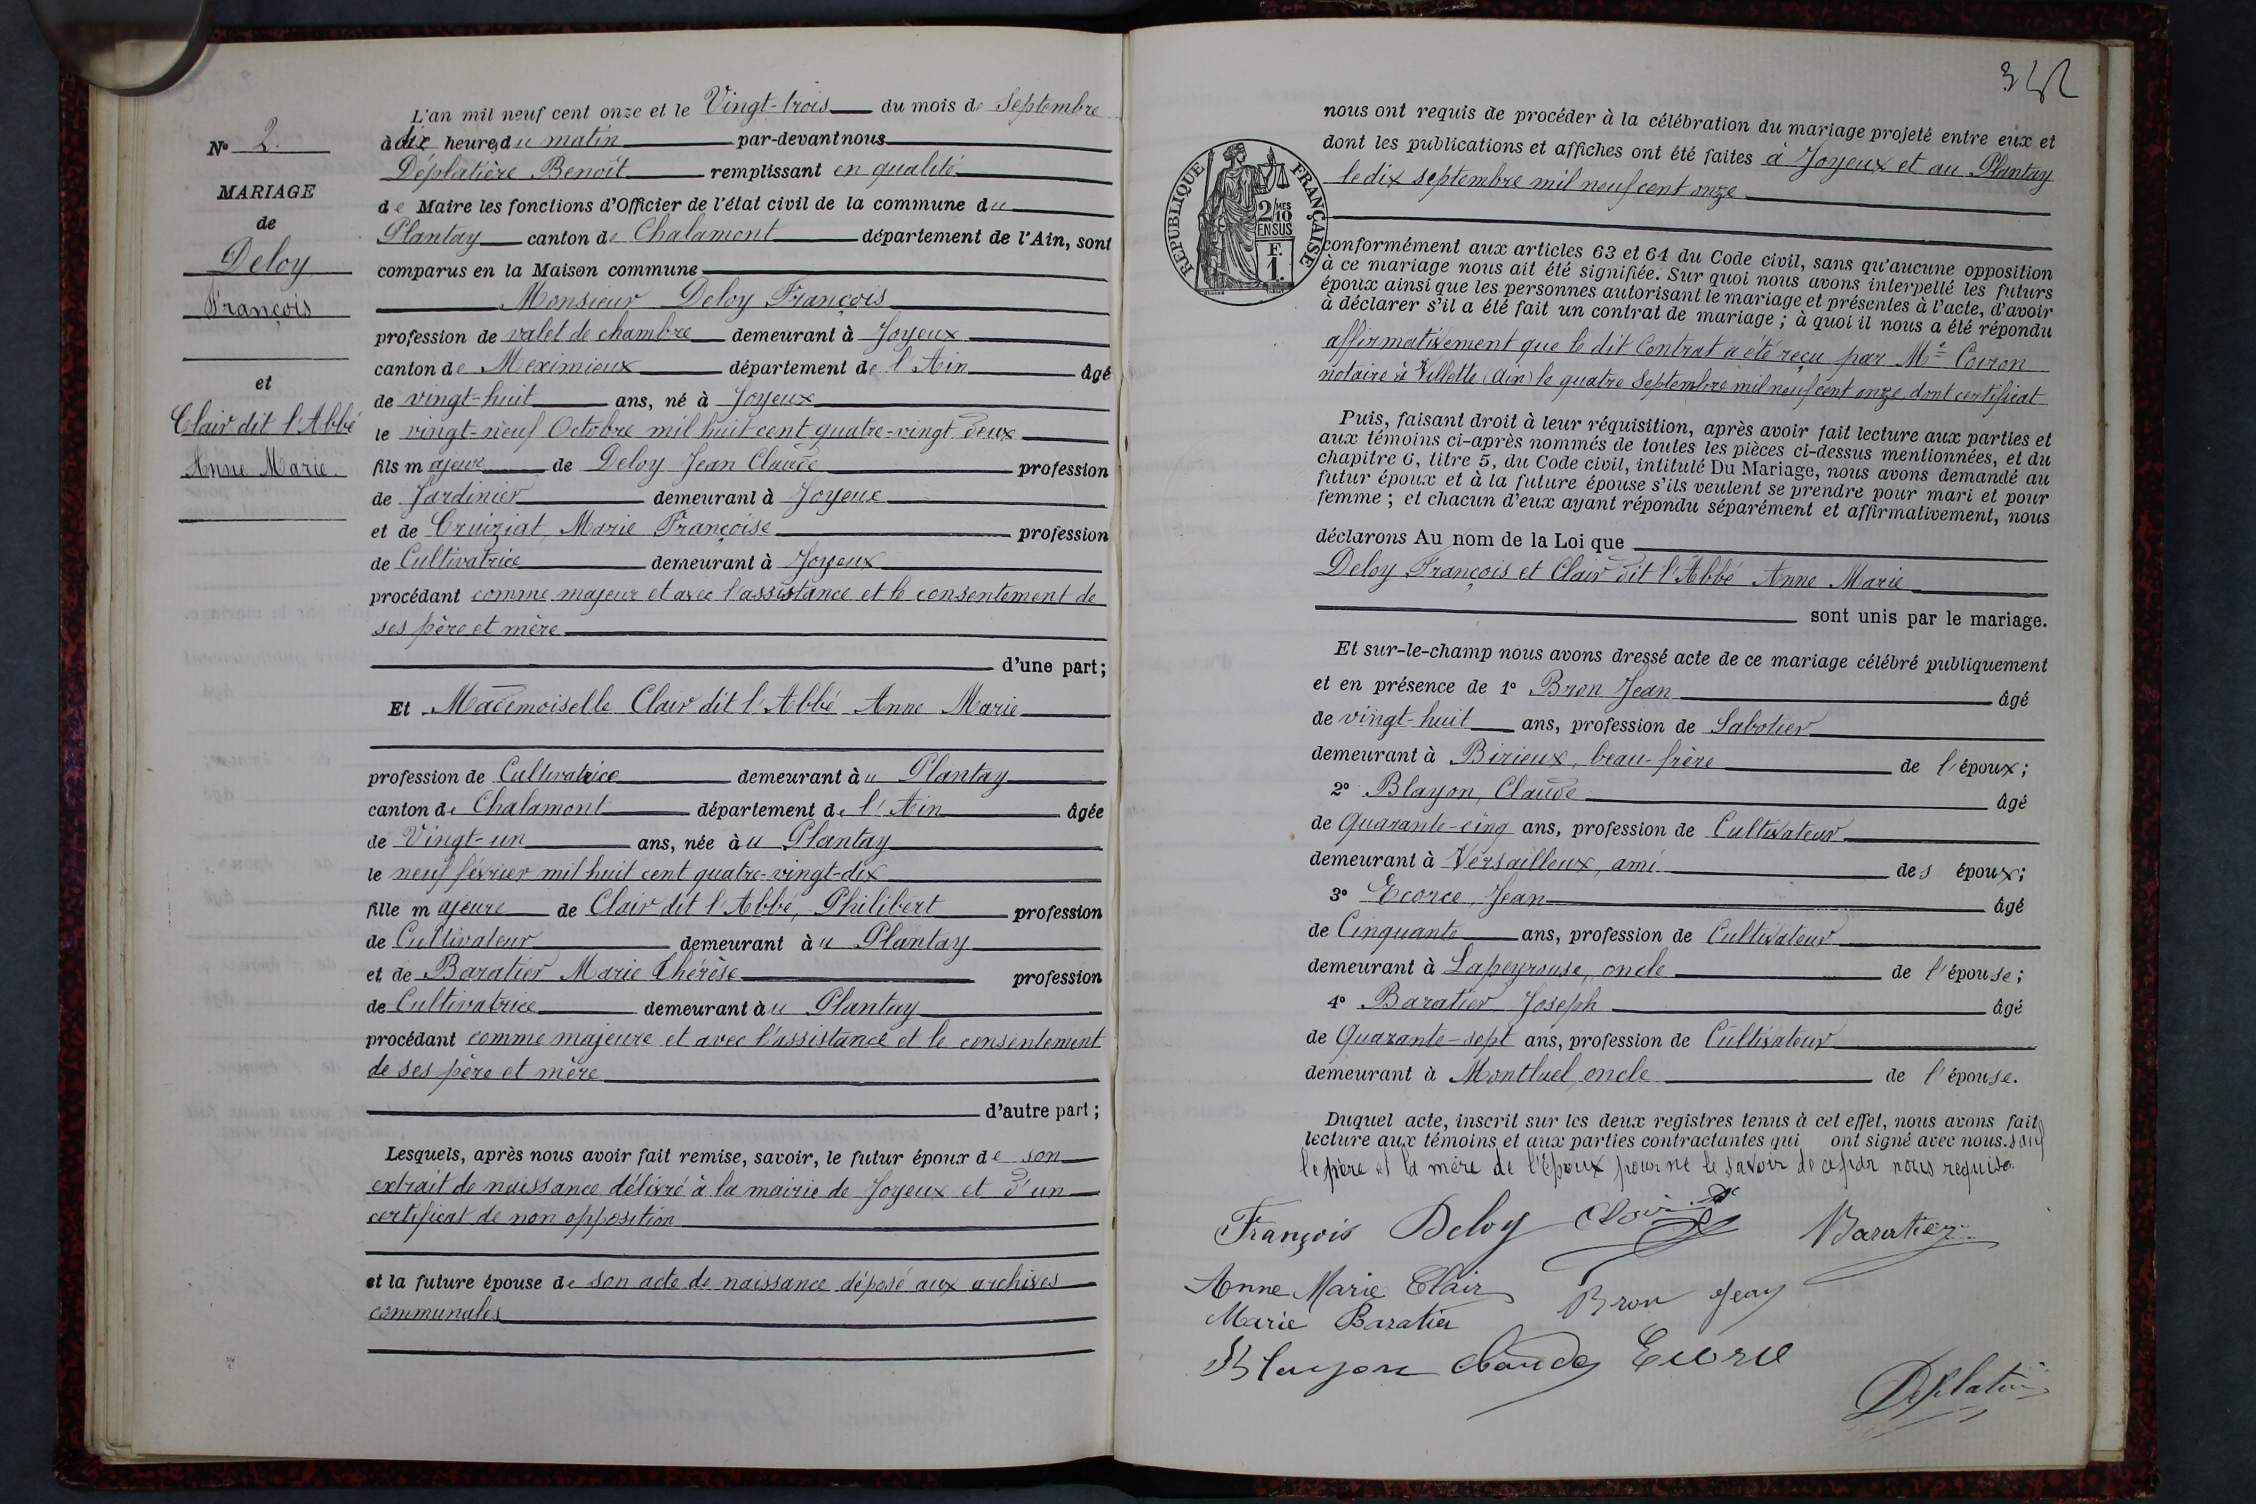 N° 2.
MARIAGE
de
Deloy
François
et
Clair dit l'Abbé
Anne Marie
L'an mil neuf cent onze et le Vingt-trois du mois de Septembre
à dix heures du matin par-devant nous
Déplatière Benoît remplissant en qualité
de Maire les fonctions d'Officier de l'état civil de la commune du
Plantay canton de Chalamont département de l'Ain, sont
comparus en la Maison commune
Monsieur Deloy François
profession de valet de chambre demeurant à Joyeux
canton de Meximieux département de l'Ain âgé
de vingt-huit ans, né à Joyeux
le vingt-neuf Octobre mil huit cent quatre-vingt deux
fils majeur de Deloy Jean Claude profession
de Jardinier demeurant à Joyeux
et de Cruiziat, Marie Françoise profession
de Cultivatrice demeurant à Joyeux
procédant comme majeur et avec l'assistance et le consentement de
ses père et mère
d'une part;
Et Mademoiselle Clair dit l'Abbé Anne Marie
profession de Cultivatrice demeurant au Plantay
canton de Chalamont département de l'Ain âgée
de Vingt-un ans, née au Plantay
le neuf février mil huit cent quatre-vingt-dix
fille majeure de Clair dit l'Abbé, Philibert profession
de Cultivateur demeurant au Plantay
et de Baratier Marie Thérèse profession
de Cultivatrice demeurant au Plantay
procédant comme majeure et avec l'assistance et le consentement
de ses père et mère
d'autre part;
Lesquels, après nous avoir fait remise, savoir, le futur époux de son
extrait de naissance délivré à la mairie de Joyeux et d'un
certificat de non opposition
et la future épouse de son acte de naissance déposé aux archives
communales
RÉPUBLIQUE FRANÇAISE
2/10 MES
EN SUS
F.
1.
nous ont requis de procéder à la célébration du mariage projeté entre eux et
dont les publications et affiches ont été faites à Joyeux et au Plantay
le dix septembre mil neuf cent onze
conformément aux articles 63 et 64 du Code civil, sans qu'aucune opposition
à ce mariage nous ait été signifiée. Sur quoi nous avons interpellé les futurs
époux ainsi que les personnes autorisant le mariage et présentes à l'acte, d'avoir
à déclarer s'il a été fait un contrat de mariage; à quoi il nous a été répondu
affirmativement que le dit Contrat a été reçu par Me Coiron
notaire à Villette (Ain) le quatre Septembre mil neuf cent onze, dont certificat
Puis, faisant droit à leur réquisition, après avoir fait lecture aux parties et
aux témoins ci-après nommés de toutes les pièces ci-dessus mentionnées, et du
chapitre 6, titre 5, du Code civil, intitulé Du Mariage, nous avons demandé au
futur époux et à la future épouse s'ils veulent se prendre pour mari et pour
femme; et chacun d'eux ayant répondu séparément et affirmativement, nous
déclarons Au nom de la Loi que
Deloy François et Clair dit l'Abbé Anne Marie
sont unis par le mariage.
Et sur-le-champ nous avons dressé acte de ce mariage célébré publiquement
et en présence de 1° Bron Jean âgé
de vingt-huit ans, profession de Sabotier
demeurant à Birieux, beau-frère de l'époux;
2° Blayon, Claude âgé
de Quarante-cinq ans, profession de Cultivateur
demeurant à Versailleux, ami des époux;
3° Ecorce, Jean âgé
de Cinquante ans, profession de Cultivateur
demeurant à Lapeyrouse, oncle de l'épouse;
4° Baratier Joseph âgé
de Quarante-sept ans, profession de Cultivateur
demeurant à Montluel, oncle de l'épouse.
Duquel acte, inscrit sur les deux registres tenus à cet effet, nous avons fait
lecture aux témoins et aux parties contractantes qui ont signé avec nous. sauf
le père et la mère de l'époux pour ne le savoir de ce par nous requise.
François Deloy Clair Baratier
Anne Marie Clair Bron Jean
Marie Baratier
Blayon Claude Ecorce
Déplatière